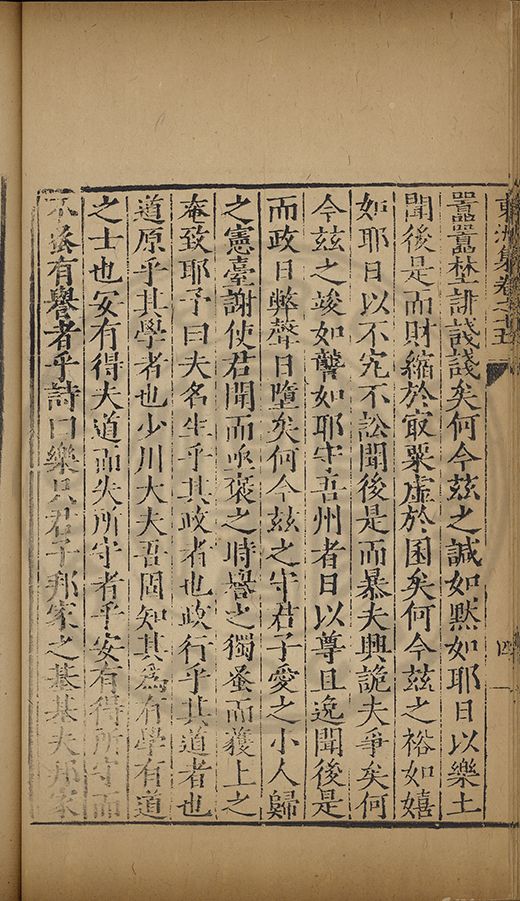 囂囂埜誹諓諓矣何今兹之諴如默如耶日以樂土
聞後是而財縮於㝡粟虛於囷矣何今兹之裕如嬉
如耶日以不宄不訟聞後是而暴夫興詭夫爭矣何
今兹之竣如讋如耶守吾州者日以尊且逸聞後是
而政日弊聲日墮矣何今兹之守君子愛之小人歸
之憲臺謝使君聞而亟褒之時譽之獨蚤而獲上之
奄致耶予曰夫名生乎其政者也政行乎其道者也
道原乎其學者也少川大夫吾固知其爲有學有道
之士也安有得夫道而失所守者乎安有得所守而
不丞有譽者乎詩曰樂只君子邦家之基基夫邦家
集卷之十五
四